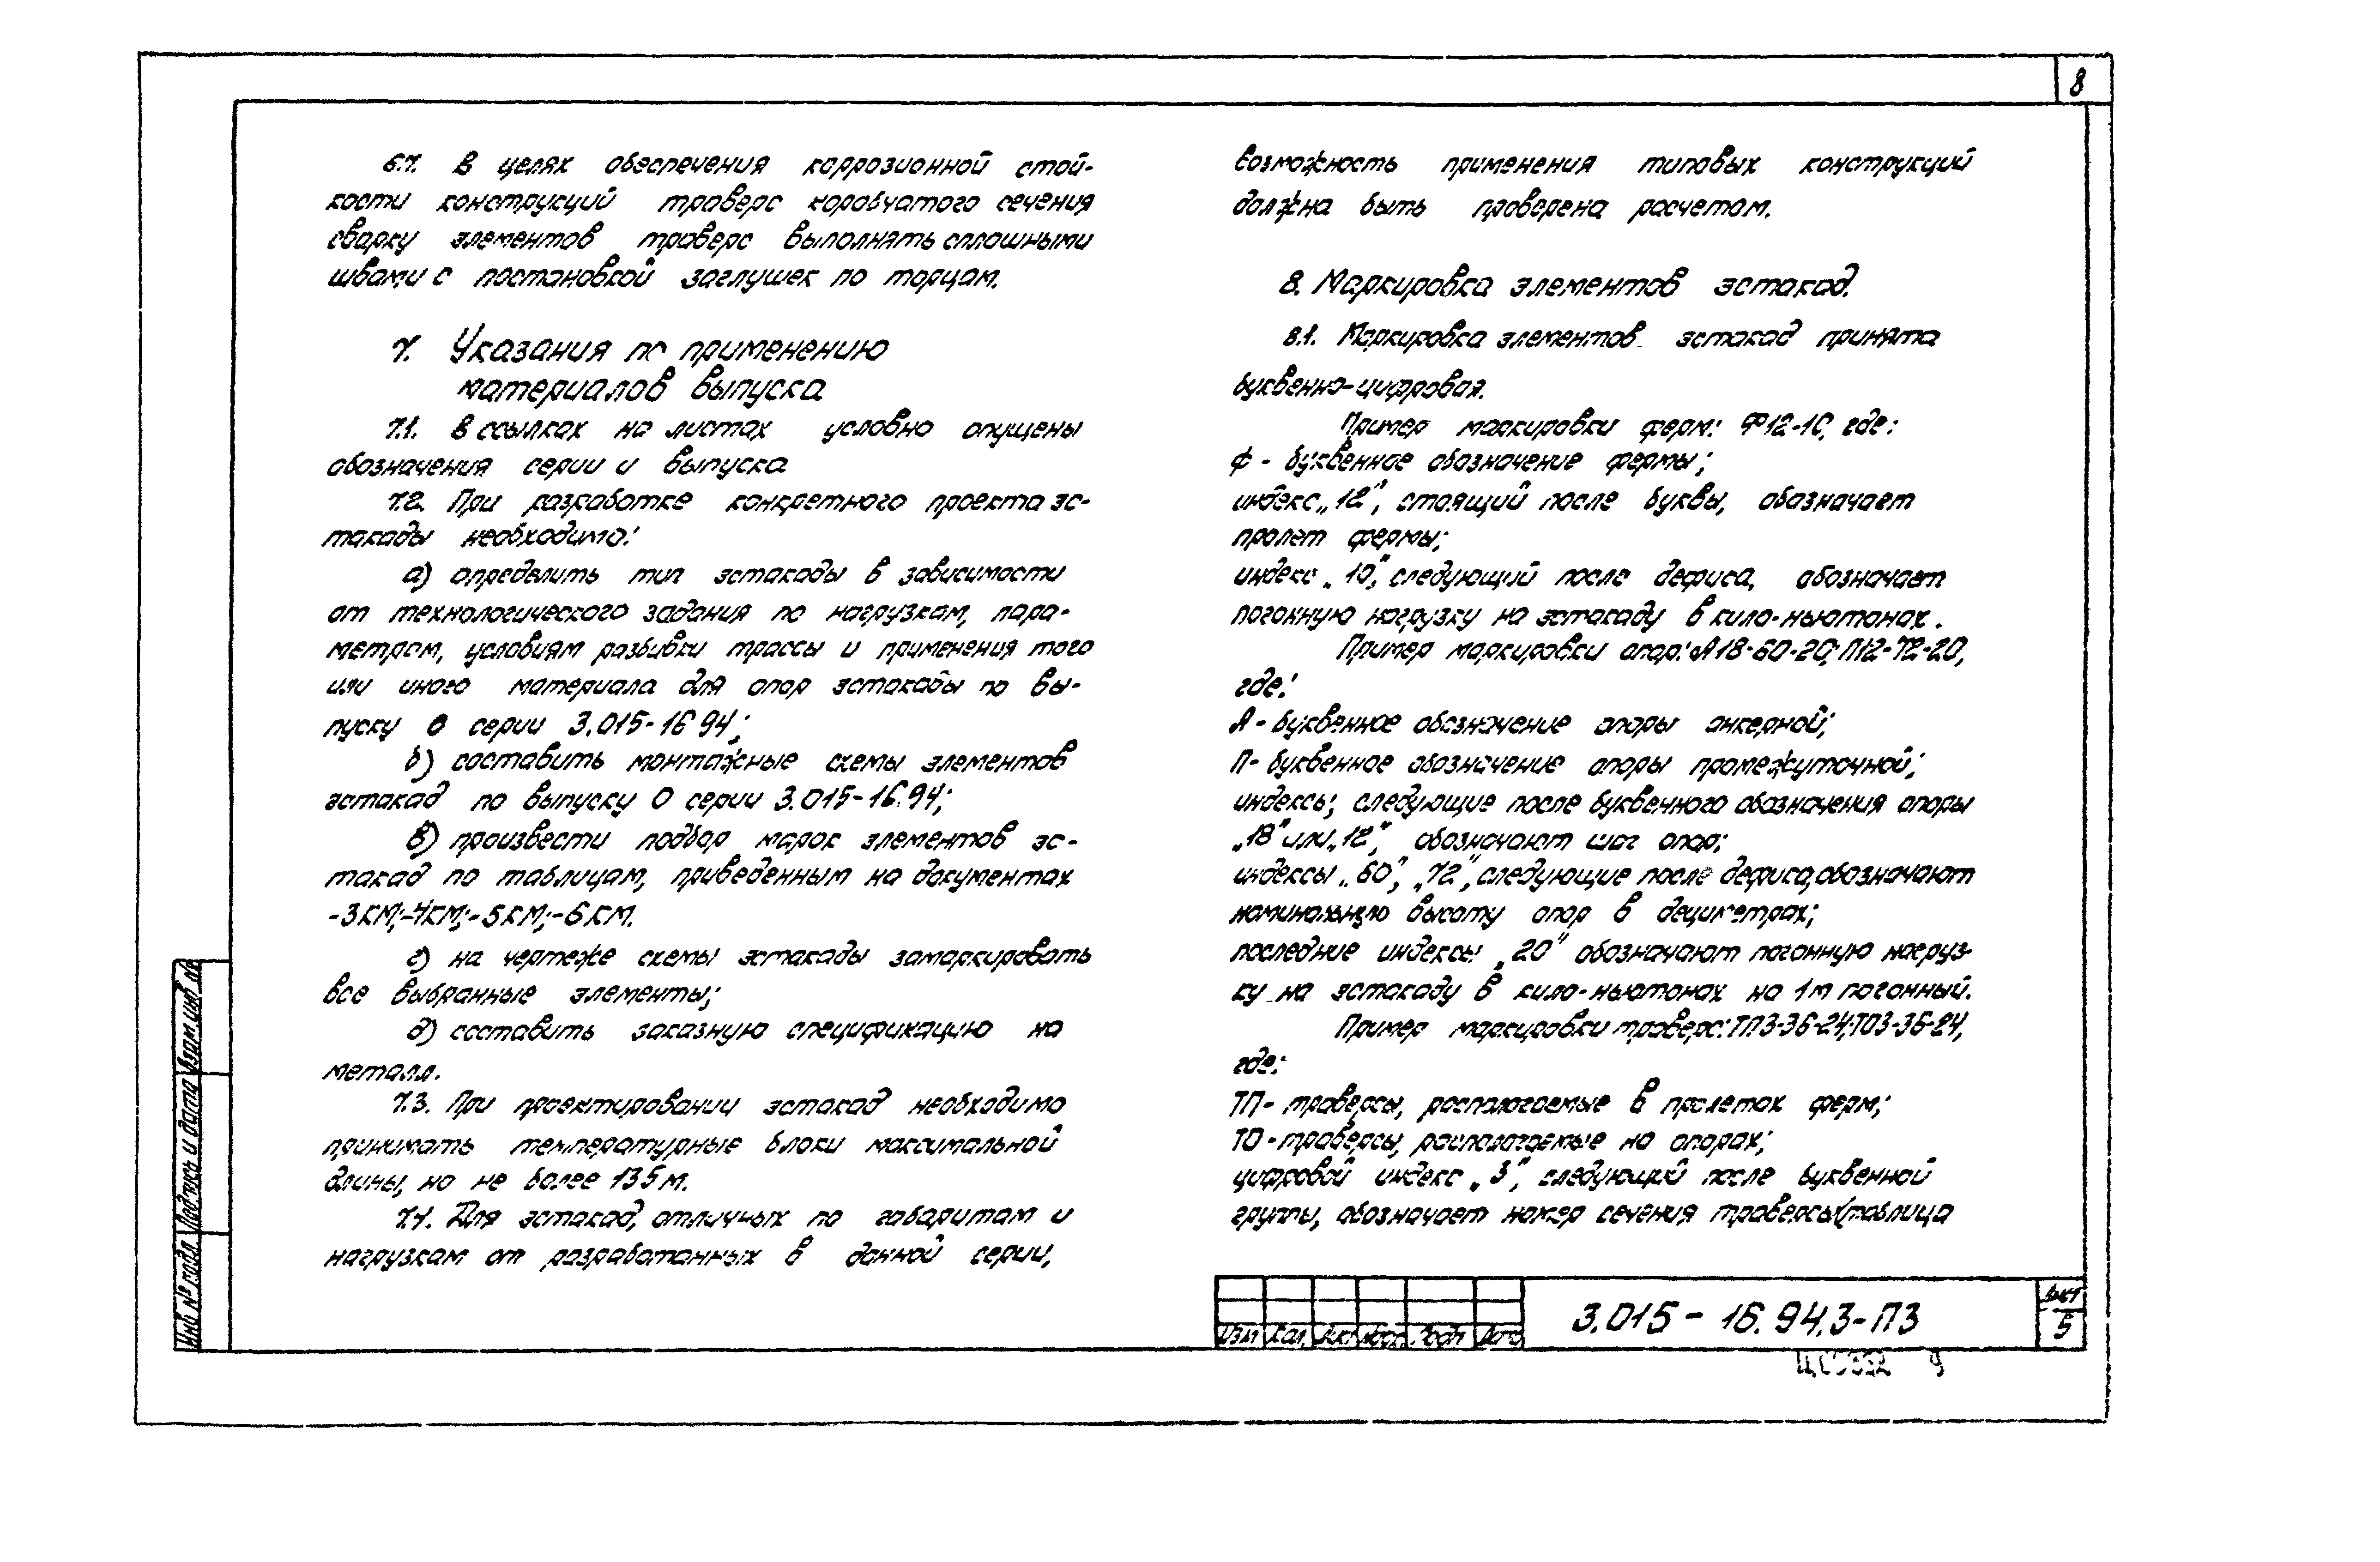 8
6.7. В целях обеспечения коррозионной стой-
кости конструкций траверс коробчатого сечения
сварку элементов траверс выполнять сплошными
швами с постановкой заглушек по торцам.
7. Указания по применению
материалов выпуска
7.1. В ссылках на листах условно опущены
обозначения серии и выпуска
7.2. При разработке конкретного проекта эс-
такады необходимо:
а) определить тип эстакады в зависимости
от технологического задания по нагрузкам, пара-
метрам, условиям разбивки трассы и применения того
или иного материала для опор эстакады по вы-
пуску 0 серии 3.015-16 94;
б) составить монтажные схемы элементов
эстакад по выпуску 0 серии 3.015-16.94;
в) произвести подбор марок элементов эс-
такад по таблицам, приведенным на документах
-3КМ;-4КМ;-5КМ;-6КМ.
г) на чертеже схемы эстакады замаркировать
все выбранные элементы;
д) составить заказную спецификацию на
металл.
7.3. При проектировании эстакад необходимо
принимать температурные блоки максимальной
длины, но не более 135м.
7.4. Для эстакад, отличных по габаритам и
нагрузкам от разработанных в данной серии,
возможность применения типовых конструкций
должна быть проверена расчетом.
8. Маркировка элементов эстакад.
8.1. Маркировка элементов эстакад принята
буквенно-цифровая.
Пример маркировки ферм: Ф12-10, где:
Ф - буквенное обозначение фермы;
индекс „12", стоящий после буквы, обозначает
пролет фермы;
индекс „10", следующий после дефиса, обозначает
погонную нагрузку на эстакаду в кило-ньютонах.
Пример маркировки опор: А18-60-20; П12-72-20,
где:
А - буквенное обозначение опоры анкерной;
П- буквенное обозначение опоры промежуточной;
индексы, следующие после буквенного обозначения опоры
„18" или „12", обозначают шаг опор;
индексы „60", „72", следующие после дефиса, обозначают
номинальную высоту опор в дециметрах;
последние индексы „20" обозначают погонную нагруз-
ку на эстакаду в кило-ньютонах на 1м погонный.
Пример маркировки траверс: ТП3-36-24; ТО3-36-24,
где:
ТП- траверсы, располагаемые в пролетах ферм;
ТО - траверсы, располагаемые на опорах;
цифровой индекс „3", следующий после буквенной
группы, обозначает номер сечения траверсы (таблица
Инв № подл Подпись и дата Взам инв
Изм Кол Лист Подп Дата
3.015 - 16.94.3-ПЗ
Лист
5
9